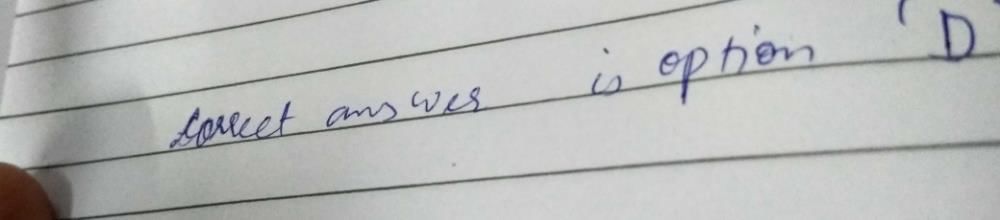 correct answer is option 'D'